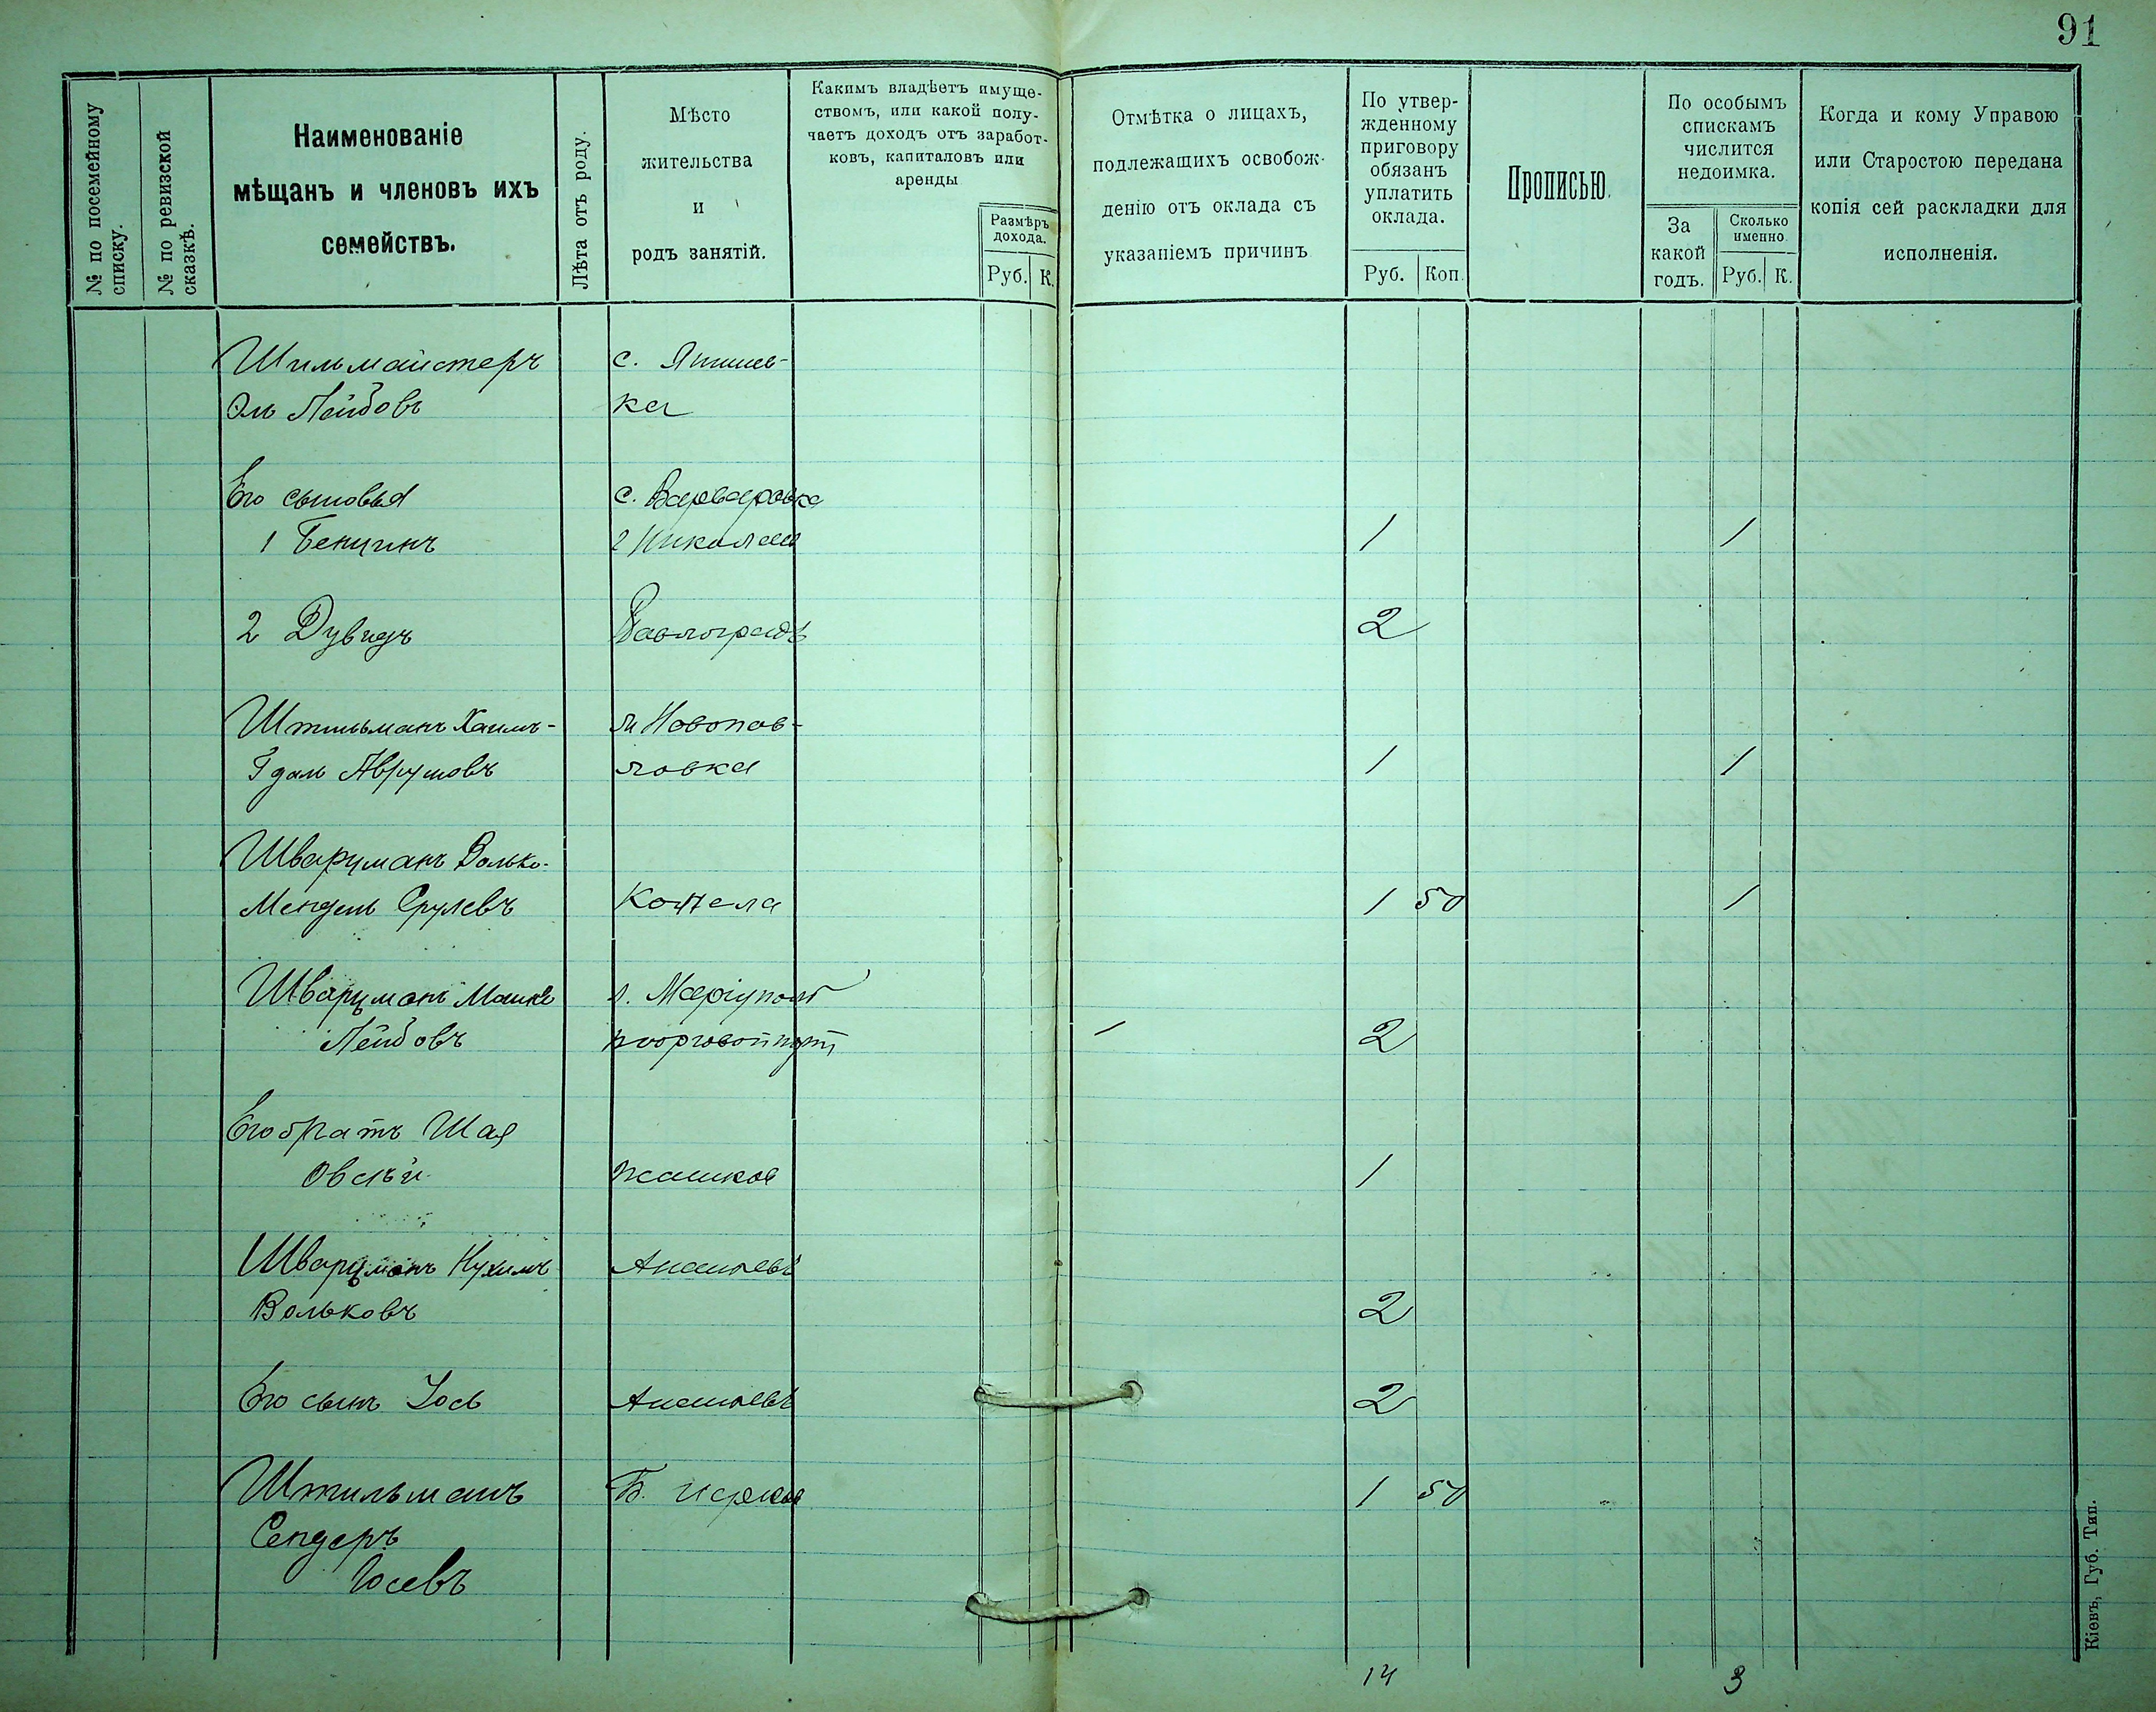 91
№ по посемейному
списку.
№ по ревизской
сказкѣ.
Наименованіе
мѣщанъ и членовъ ихъ
семействъ.
Лѣта отъ роду.
Мѣсто
жительства
и
родъ занятій.
Какимъ владѣетъ имуще-
ствомъ, или какой полу-
чаетъ доходъ отъ заработ-
ковъ, капиталовъ или
аренды
Размѣръ
дохода.
Руб. К.
Отмѣтка о лицахъ,
подлежащихъ освобож-
денію отъ оклада съ
указаніемъ причинъ
По утвер-
жденному
приговору
обязанъ
уплатить
оклада.
Руб. Коп.
Прописью.
По особымъ
спискамъ
числится
недоимка.
За
какой
годъ.
Сколько
именно.
Руб. К.
Когда и кому Управою
или Старостою передана
копія сей раскладки для
исполненія.
Шильмайстеръ с.
Лейбовъ ка
Его сыновья с. Варваровка
1 Бенцинъ 1 1
2 Дувидъ Павлоградъ 2
Штильманъ Хаимъ- м Новопав-
Гдаль Аврумовъ ловка 1 1
Шварцманъ Волько-
Мендель Срулевъ Кошела 1 50 1
Шварцманъ Машка г. Маріуполь
Лейбовъ портъ 2
Его братъ Шая
Овсѣй Жашков 1
Шварцманъ Нухимъ Ананьевъ
Вольковъ 2
Его сынъ Іось Ананьевъ 2
Штильманъ Б. Церков 1 50
Сендеръ
Іосевъ
14 3
Кіевъ, Губ. Тип.